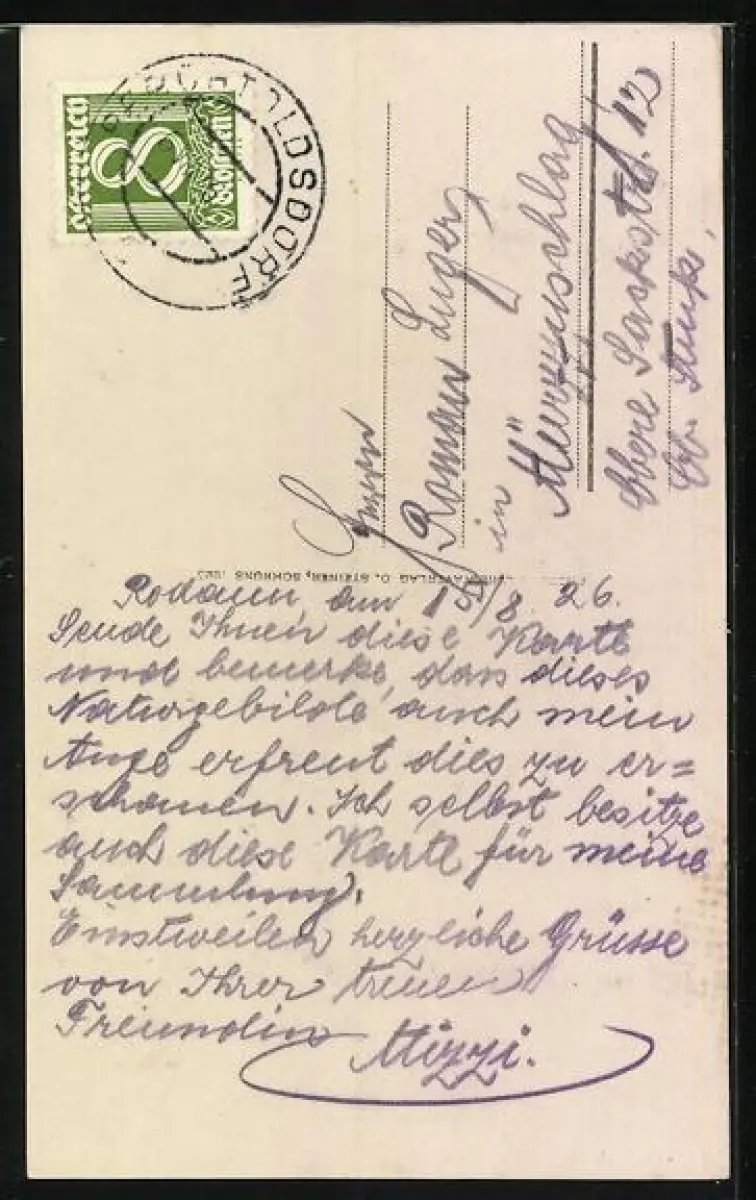 Österreich
8
Groschen
PERCHTOLDSDORF
Herrn
Roman Luger
in Mürzzuschlag
Obere Sackstr. 12
Stmk.
VERLAG O. STEINER,
Rodaun, am 15/8. 26.
Sende Ihnen diese Karte
und bemerke, dass dieses
Naturgebilde auch mein
Auge erfreut dies zu er=
schauen. Ich selbst besitze
auch diese Karte für meine
Sammlung.
Einstweilen herzliche Grüsse
von Ihrer treuen
Freundin Mizzi.